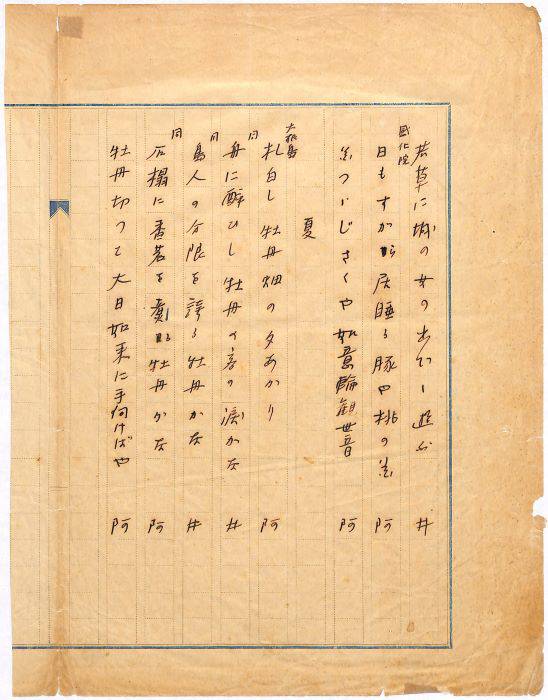 若草に城の女の出でし遊ぶ 井
感化院
日もすがら居睡る豚や桃の花 阿
岩つゝじさくや如意輪観世音 阿
夏
大根島
札白し牡丹畑の夕あかり 阿
同
舟に醉ひし牡丹の客の涙かな 井
同
島人の分限を誇る牡丹かな 井
同
石榻に香茗を煮る牡丹かな 阿
牡丹切つて大日如来に手向けばや 阿